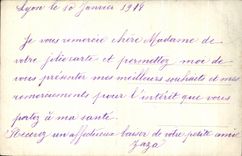 Lyon le 10 Janvier 1918
Je vous remercie chère Madame de
votre jolie carte et permettez moi de
vous présenter mes meilleurs souhaits et mes
remerciements pour l'intérêt que vous
portez à ma santé.
Recevez un affectueux baiser de votre petite amie
Zaza